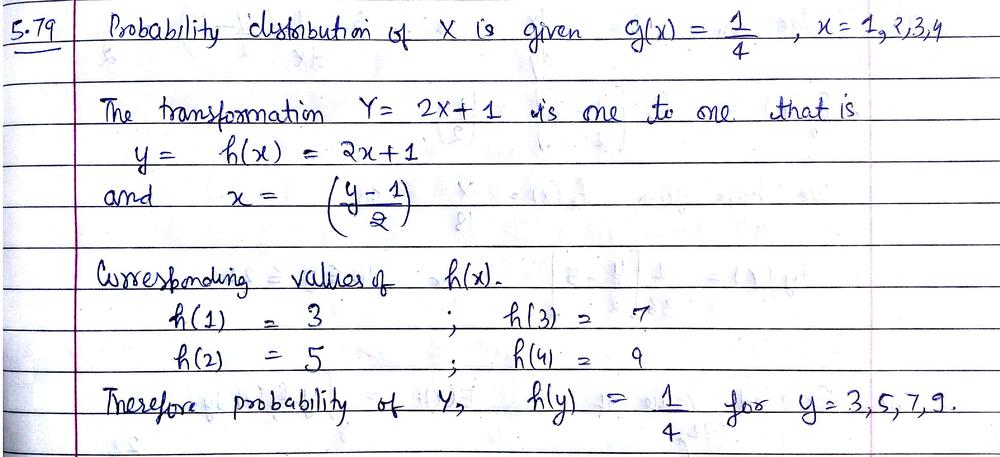 5.79 Probability distribution of X is given g(x) = 1/4 , x = 1, 2, 3, 4
The transformation Y = 2X + 1 is one to one that is
y = h(x) = 2x + 1
and x = ((y - 1)/2)
Corresponding values of h(x).
h(1) = 3 ; h(3) = 7
h(2) = 5 ; h(4) = 9
Therefore probability of Y, h(y) = 1/4 for y = 3, 5, 7, 9.